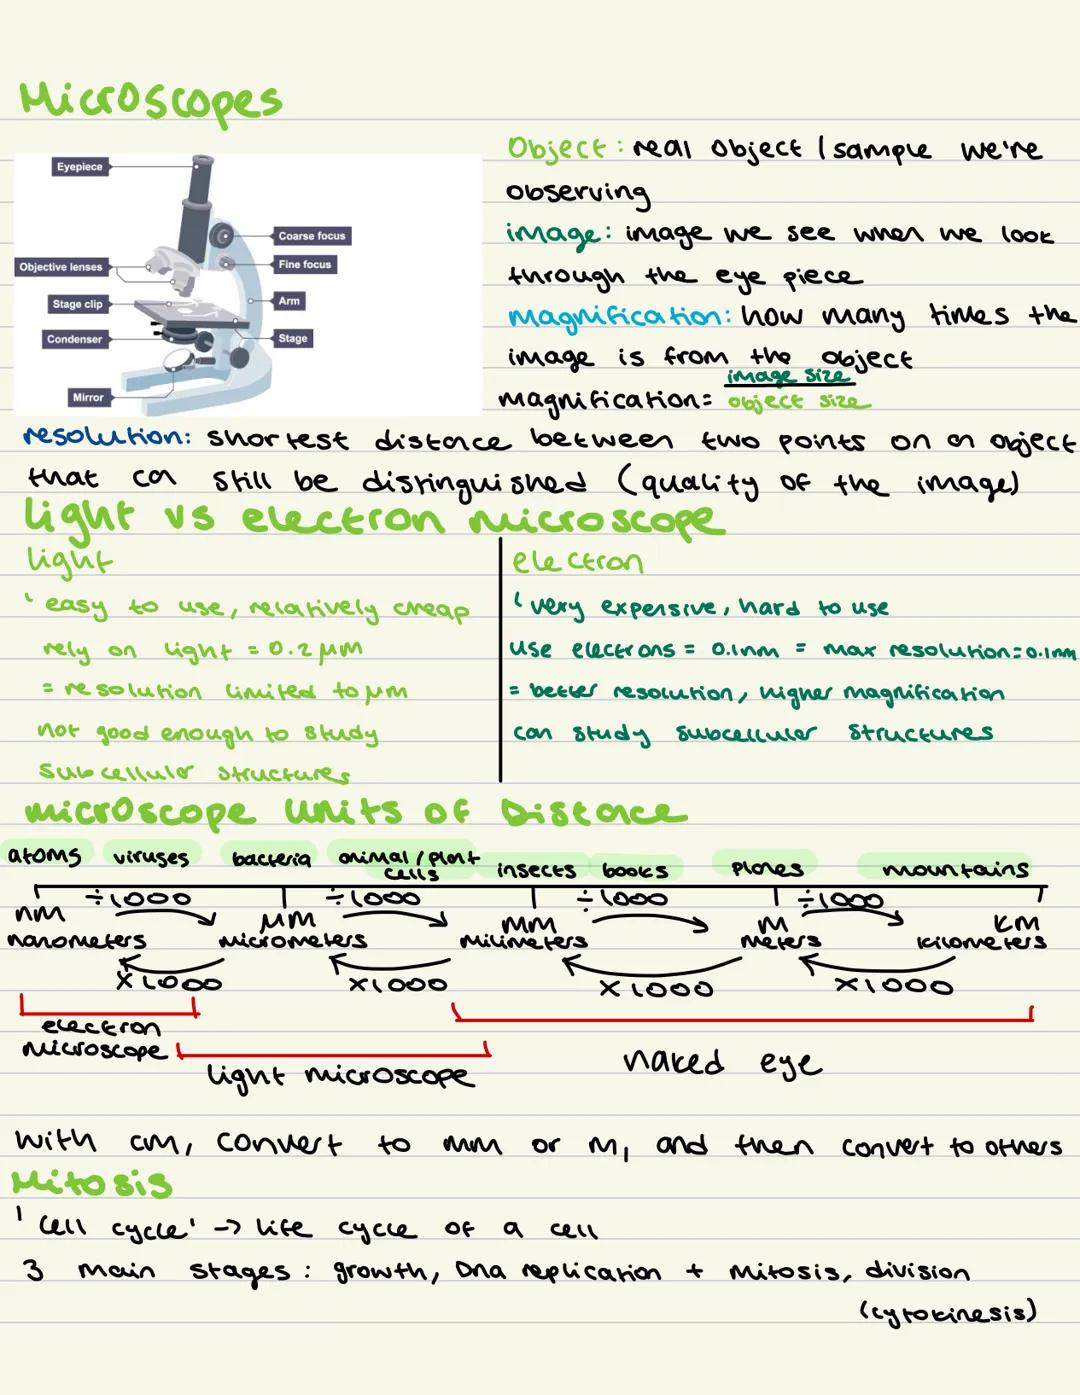 Microscopes
Eyepiece
Coarse focus
Objective lenses
Fine focus
Stage clip
Arm
Condenser
Stage
Mirror
Object: real object / sample we're
observing
image: image we see when we look
through the eye piece
magnification: how many times the
image is from the object
magnification= image size
object size
resolution: shortest distance between two points on an object
that can still be distinguished (quality of the image)
light vs electron microscope
light
easy to use, relatively cheap
rely on light = 0.2 μm
= resolution limited to μm
not good enough to study
subcellular structures
electron
very expensive, hard to use
use electrons = 0.1nm = max resolution=0.1nm
= better resolution, higher magnification
can study subcellular structures
microscope units of Distance
atoms viruses bacteria animal / plant cells insects books planes mountains
÷1000 ÷1000 ÷1000 ÷1000
nm μm mm m km
nanometers micrometers milimeters meters kilometers
x1000 x1000 x1000 x1000
electron
microscope
light microscope
naked eye
with cm, convert to mm or m, and then convert to others
Mitosis
'cell cycle' -> life cycle of a cell
3 main stages: growth, Dna replication + mitosis, division
(cytokinesis)